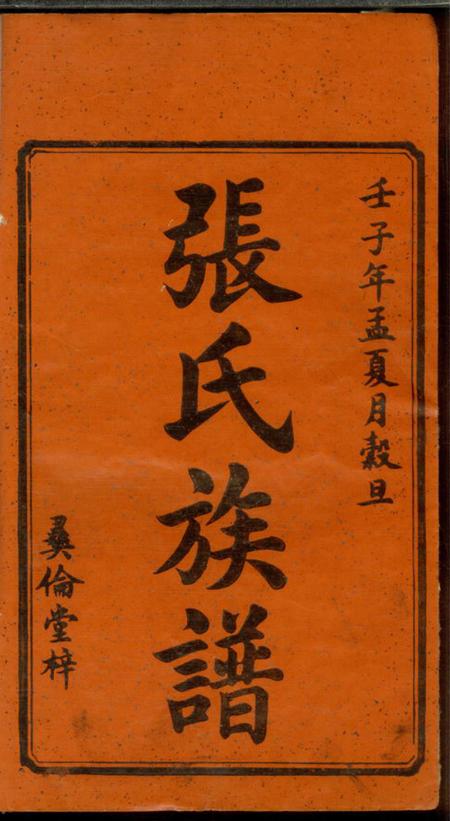 壬子年孟夏月穀旦
張氏族譜
彝倫堂梓